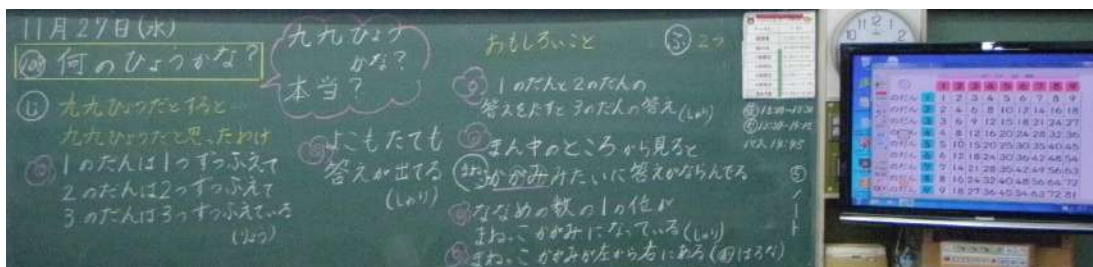 11月27日(水)
何のひょうかな?
九九ひょう
かな?
本当?
じ
九九ひょうだとすると
九九ひょうだと思ったわけ
1のだんは1つずつふえて
2のだんは2つずつふえて
3のだんは3つずつふえている
よこもたても
答えが出てる
(しゅり)
おもしろいこと
ふ 2つ
1のだんと2のだんの
答えをたすと3のだんの答え(しゅり)
まん中のところから見ると
かがみみたいに答えがならんでる
ななめの数の1の位が
まねっこかがみになっている(しゅり)
まねっこかがみが左から右にある
ノート
1 2 3 4 5 6 7 8 9
のだん 1 1 2 3 4 5 6 7 8 9
のだん 2 2 4 6 8 10 12 14 16 18
のだん 3 3 6 9 12 15 18 21 24 27
のだん 4 4 8 12 16 20 24 28 32 36
のだん 5 5 10 15 20 25 30 35 40 45
のだん 6 6 12 18 24 30 36 42 48 54
のだん 7 7 14 21 28 35 42 49 56 63
のだん 8 8 16 24 32 40 48 56 64 72
のだん 9 9 18 27 36 45 54 63 72 81